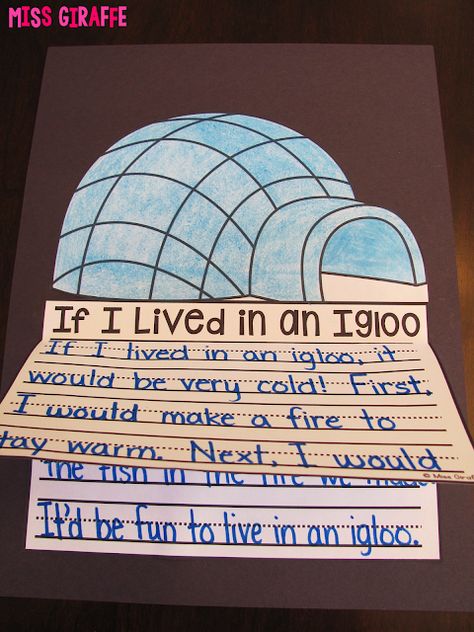 MISS GIRAFFE
If I Lived in an Igloo
If I lived in an igloo, it
would be very cold! First,
I would make a fire to
tay warm. Next, I would
© Miss Giraff
the fish in the fire we made
It'd be fun to live in an igloo.